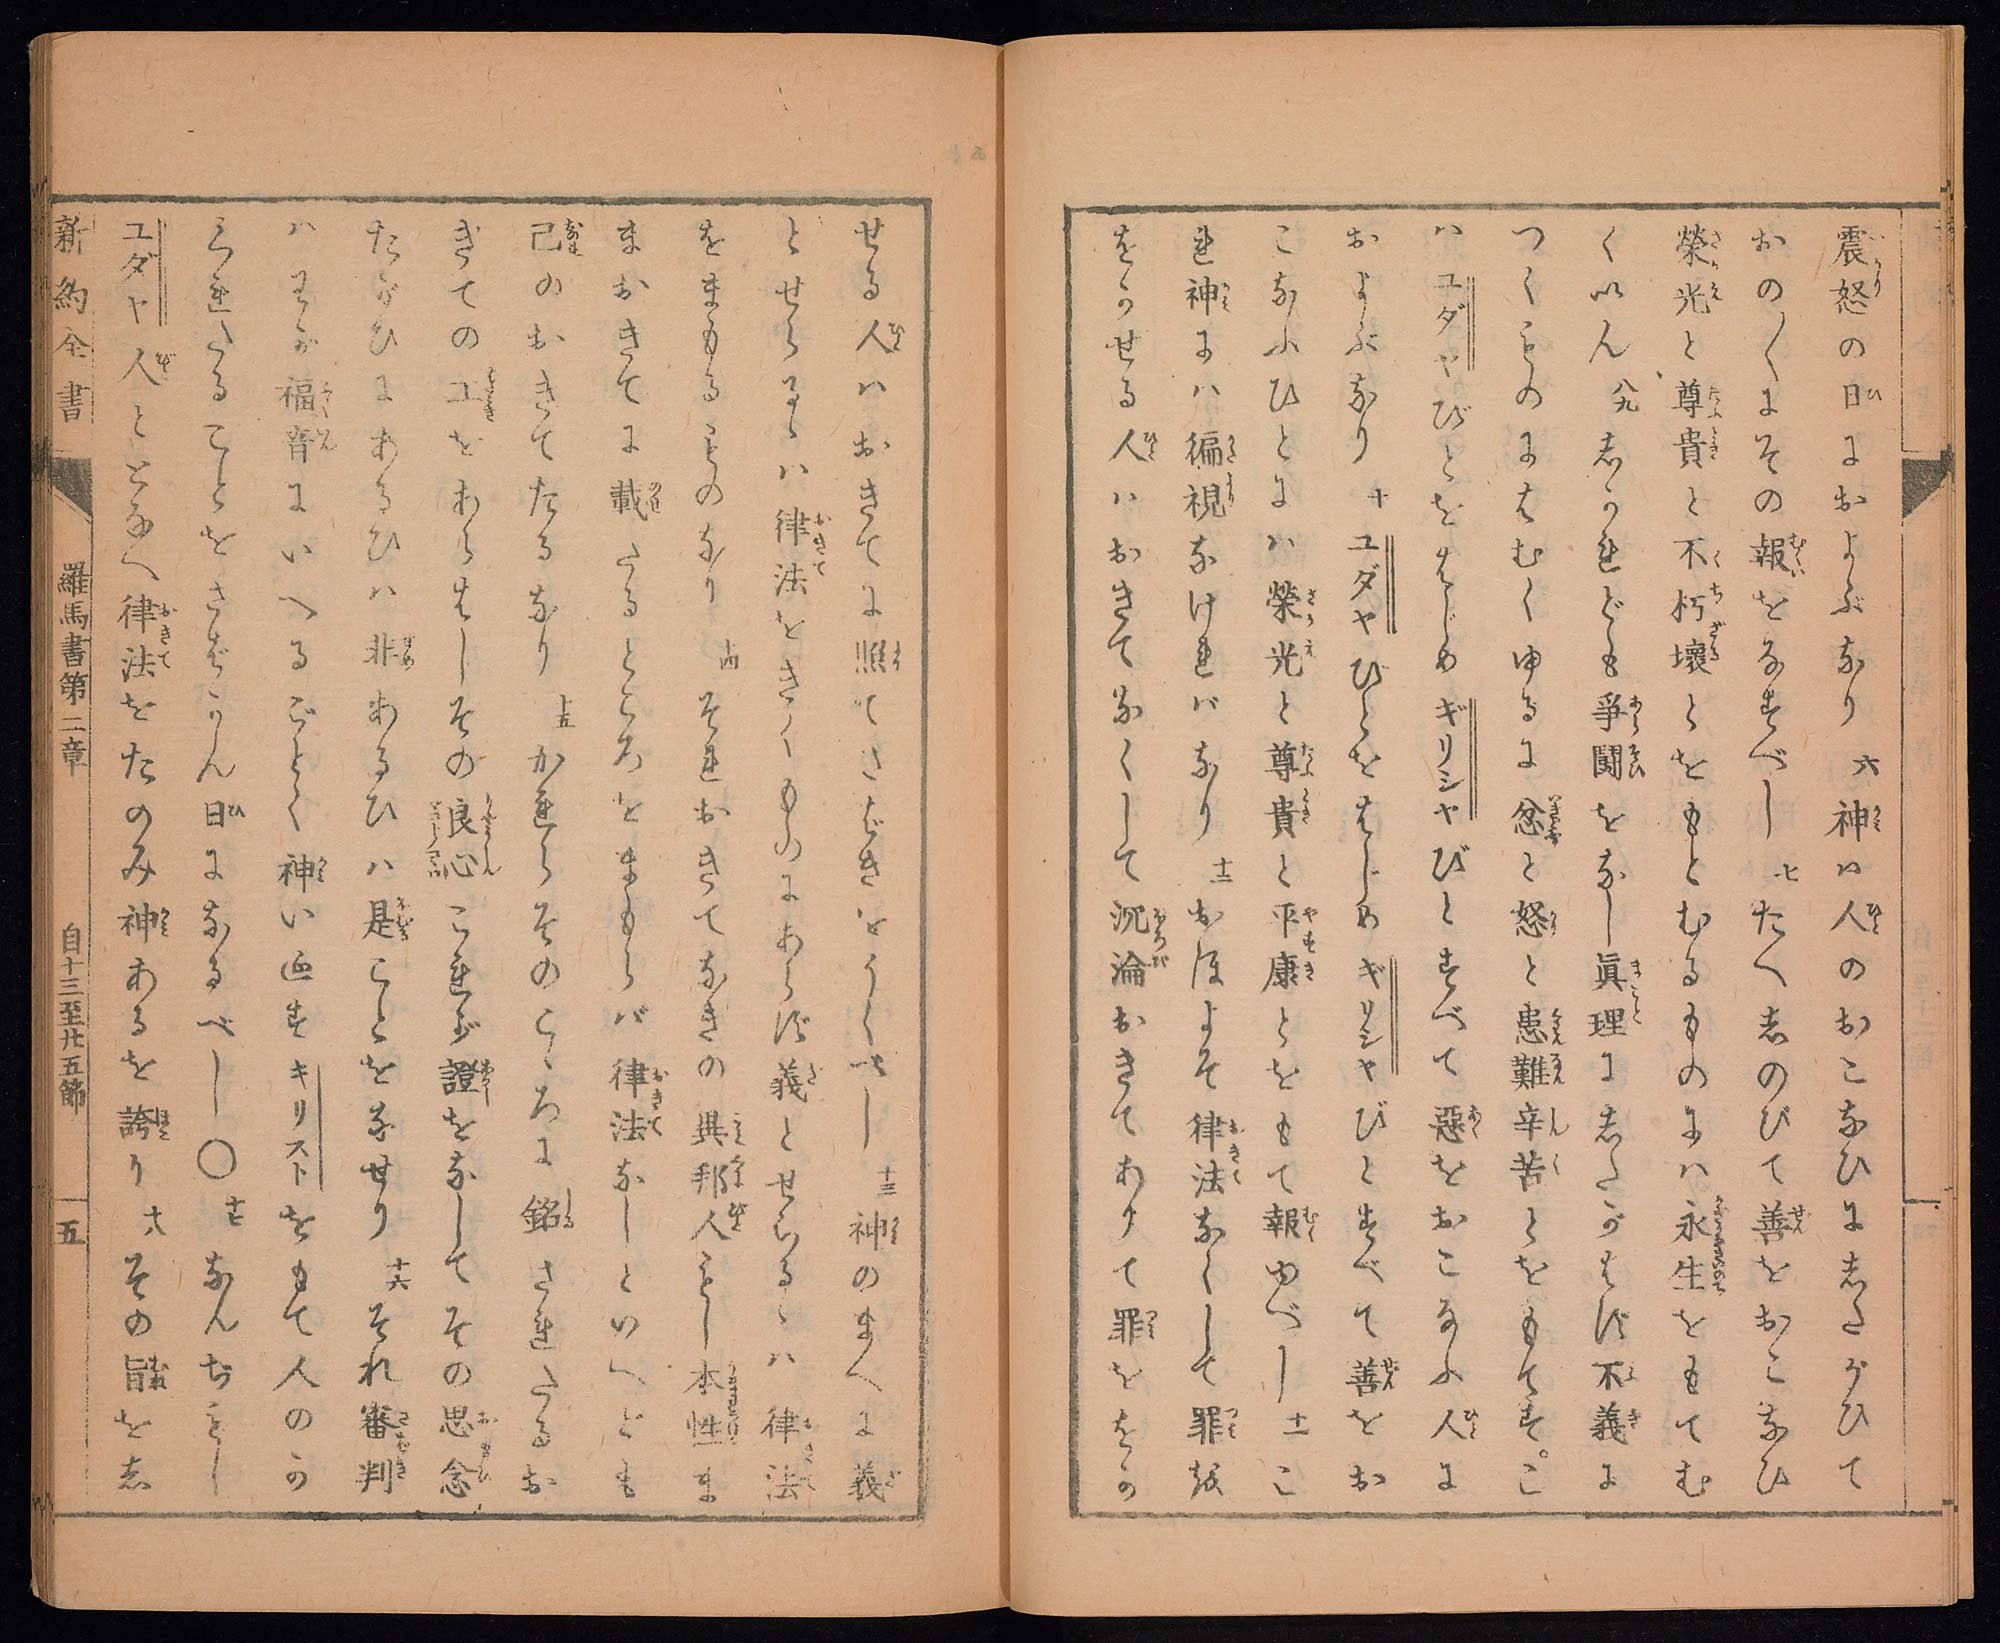 震怒の日におよぶなり 六 神ハ人のおこなひにしたがひて
おの〱にその報をなすべし 七 たへしのびて善をおこなひ
榮光と尊貴と不朽壞とをもとむるものにハ永生をもてむ
くいん 八九 しかれども爭鬪をなし眞理にしたがはず不義に
つくものにはむくゆるに忿と怒と患難辛苦とをもてす。こ
ハユダヤびとをはじめギリシヤびとすべて惡をおこなふ人に
およぶなり 十 ユダヤびとをはじめギリシヤびとすべて善をお
こなふひとにハ榮光と尊貴と平康とをもて報ゆべし 十一 こ
れ神にハ徧視なけれバなり 十二 おほよそ律法なくして罪を
をかせる人ハおきてなくして沉淪おきてありて罪ををか
せる人ハおきてに照てさばきをうくべし 十三 神のまへに義
とせらるゝハ律法をきくものにあらず義とせらるゝハ律法
をまもるものなり 十四 それおきてなきの異邦人もし本性ま
まおきてに載たるところをまもらバ律法なしといへども
己のおきてたるなり 十五 かれらそのこゝろに銘されたるお
きての工をあらはしその良心これが證をなしてその思念
たがひにあるひハ非あるひハ是ことをなせり 十六 それ審判
ハわが福音にいへるごとく神イエスキリストをもて人のか
くれたることをさばかん日になるべし〇 十七 なんぢもし
ユダヤ人ととなへ律法をたのみ神あるを誇り 十八 その旨をし
新約全書
羅馬書第二章
自十三至廿五節
五